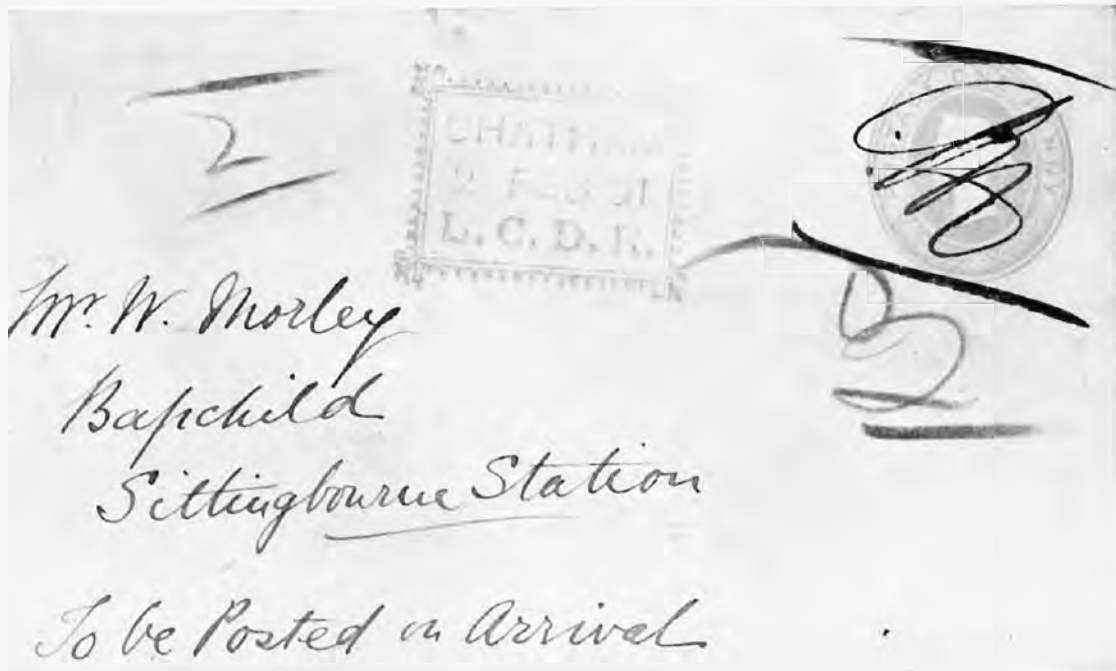 2
CHATHAM
2 FEB 91
L. C. D. R.
Mr. W. Morley
Bapchild
Sittingbourne Station
To be Posted on Arrival